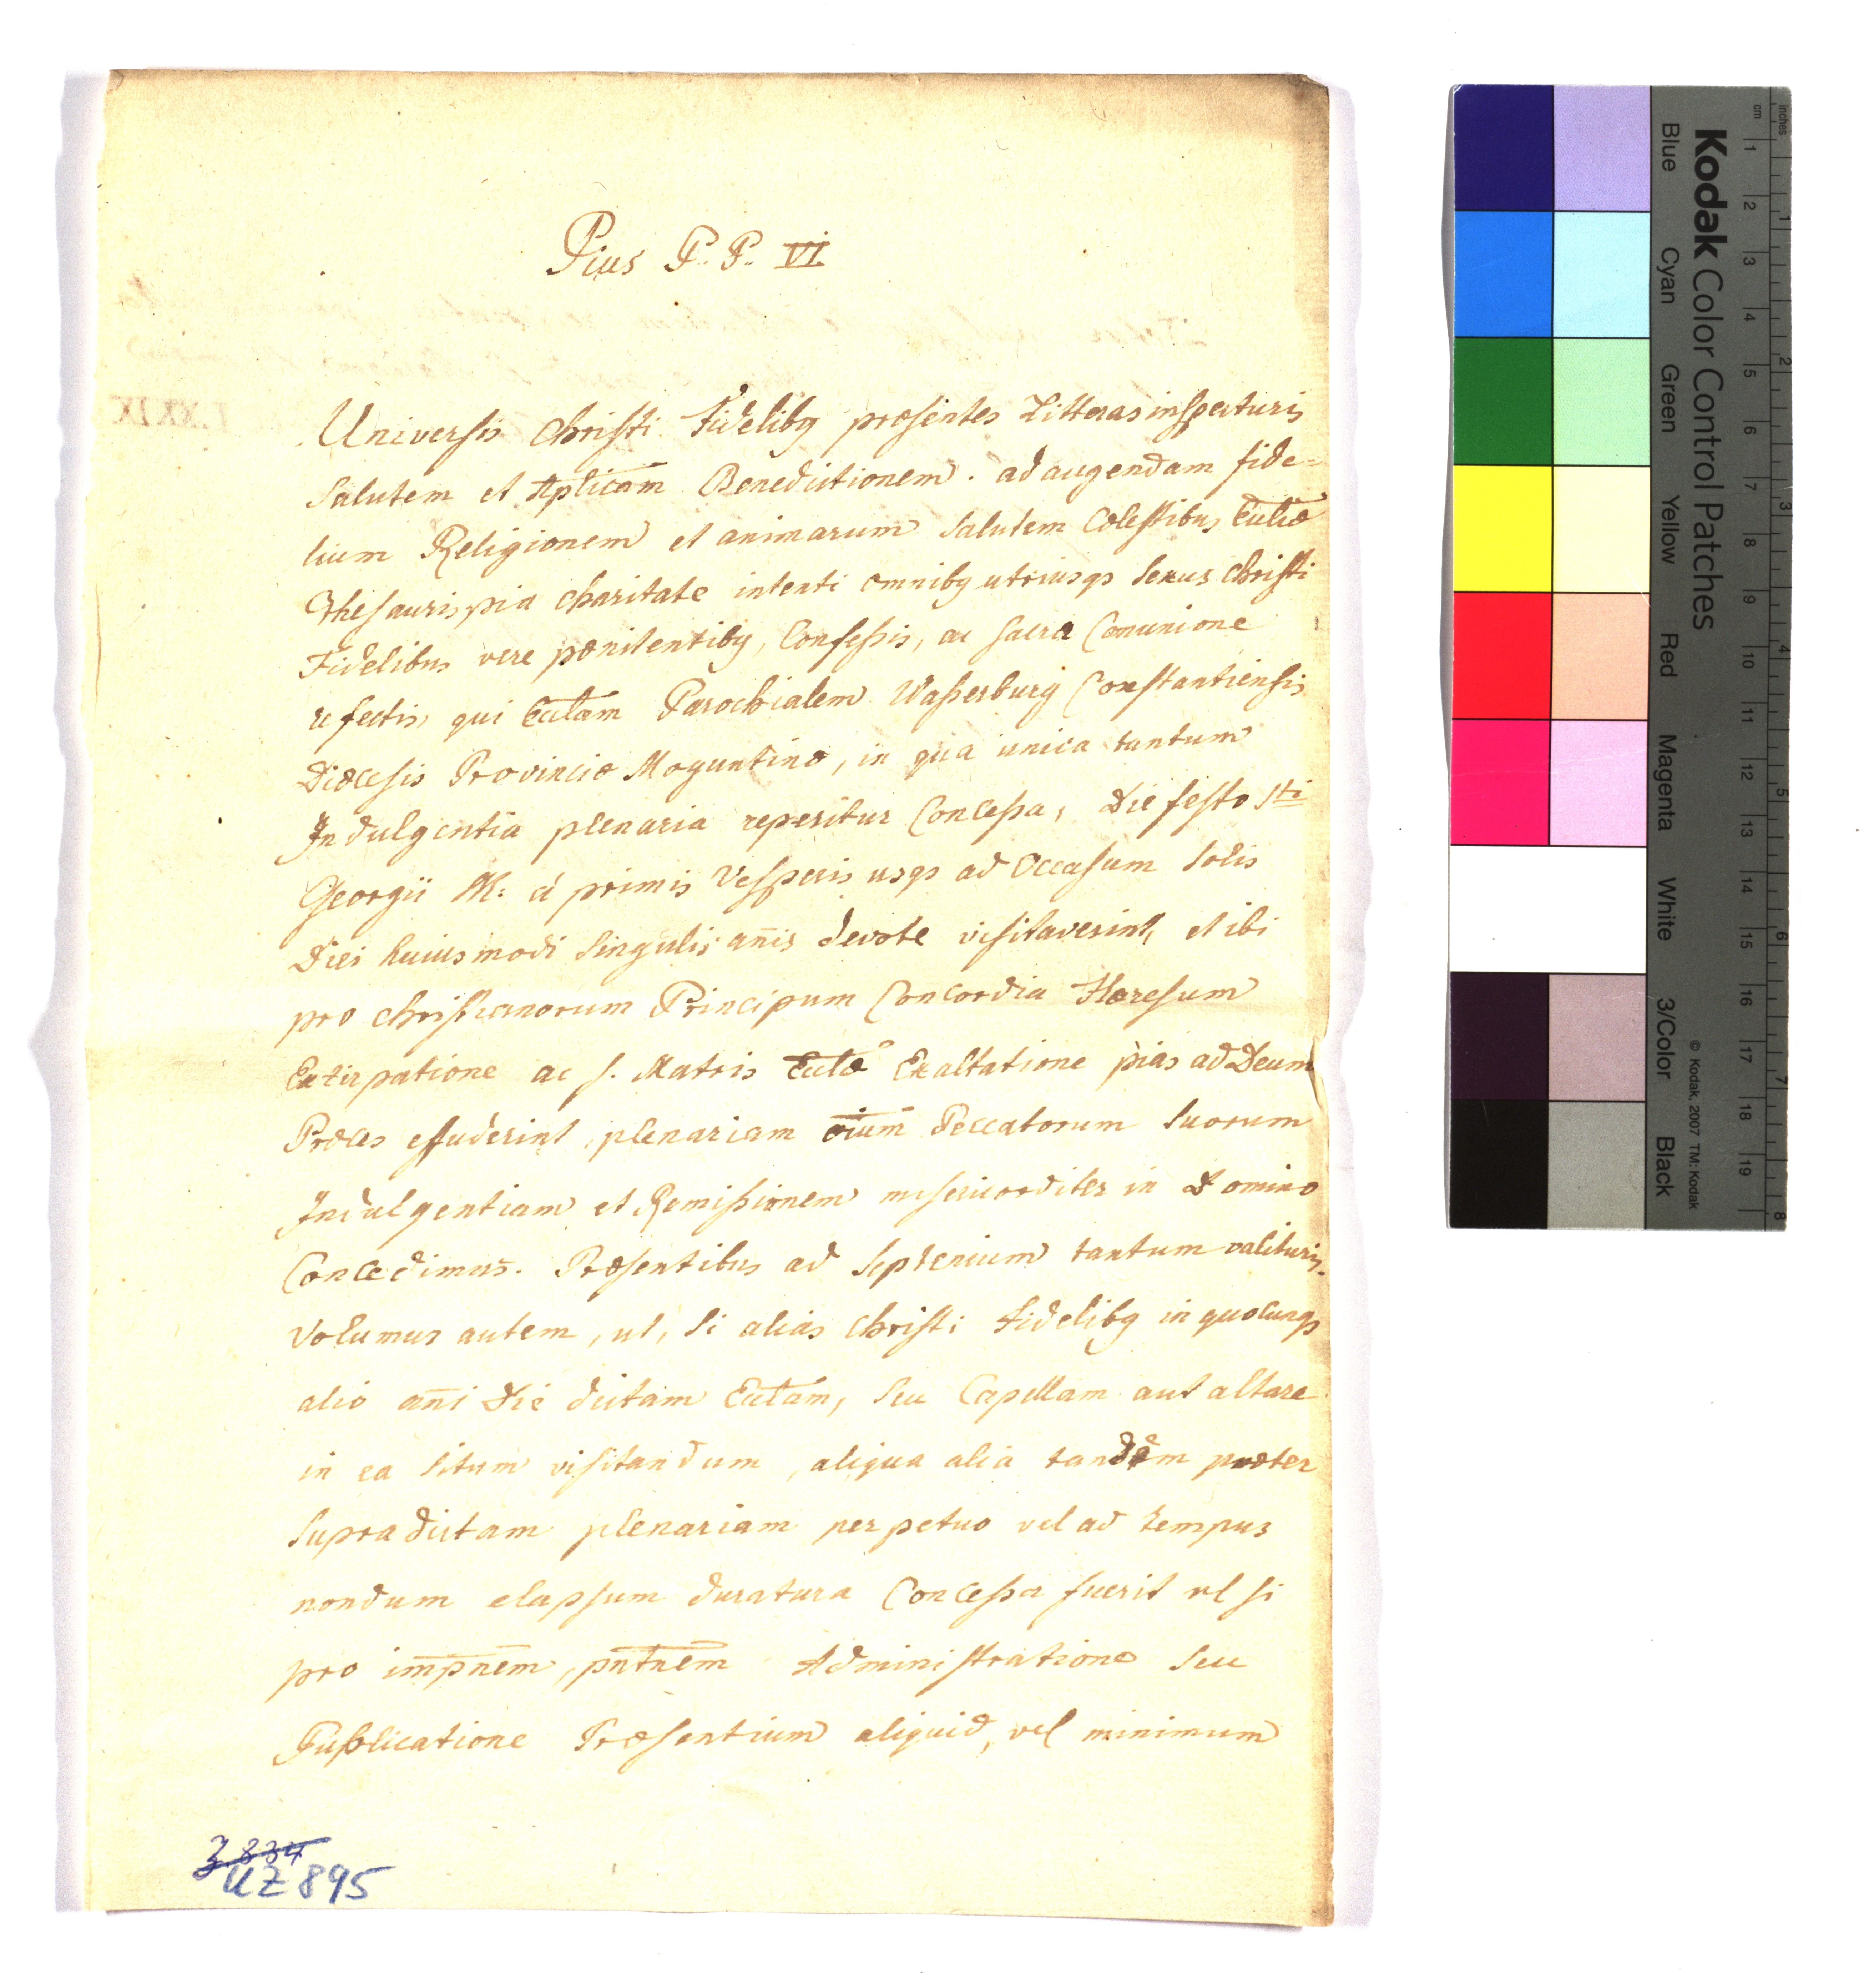 Pius P. P. VI
Universis Christi Fidelibq præsentes Litteras inspecturis
Salutem et Aplicam Benedictionem. ad augendam fide=
lium Religionem et animarum Salutem Cœlestibus Eccliæ
Thesauris pia charitate intenti omnibq utriusqs Sexus Christi
Fidelibus vere pœnitentibq, Confeßis, ac Sacra Comunione
refectis, qui Ecclam Parochialem Waßerburg Constantiensis
Diœcesis Provinciæ Moguntinæ, in qua unica tantum
Indulgentia plenaria reperitur Conceßa, Die festo Sti
Georgii M: á primis Vesperis usqs ad Occasum Solis
Diei huiusmodi Singulis anis devote visitaverint, et ibi
pro christianorum Principum Concordia Hæresum
Extirpatione ac S. Matris Eccliæ Exaltatione pias ad Deum
Præces effuderint, plenariam oium Peccatorum Suorum
Indulgentiam et Remißionem misericorditer in Domino
Concedimus. Præsentibus ad Septenium tantum valituris.
Volumus autem, ut, Si alias Christi Fidelibq in quocunqs
alio ani Die dictam Ecclam, Seu Capellam aut altare
in ea Situm visitandum, aliqua alia tandem præter
Supradictam plenariam perpetuo vel ad tempus
nondum elapsum duratura Conceßa fuerit vel si
pro impnem, pntnem Administratione Seu
Publicatione Præsentium aliquid, vel minimum
3834
UZ 895
LXXIX
Kodak Color Control Patches
Blue Cyan Green Yellow Red Magenta White 3/Color Black
© Kodak, 2007 TM: Kodak
inches 1 2 3 4 5 6 7 8
cm 1 2 3 4 5 6 7 8 9 10 11 12 13 14 15 16 17 18 19